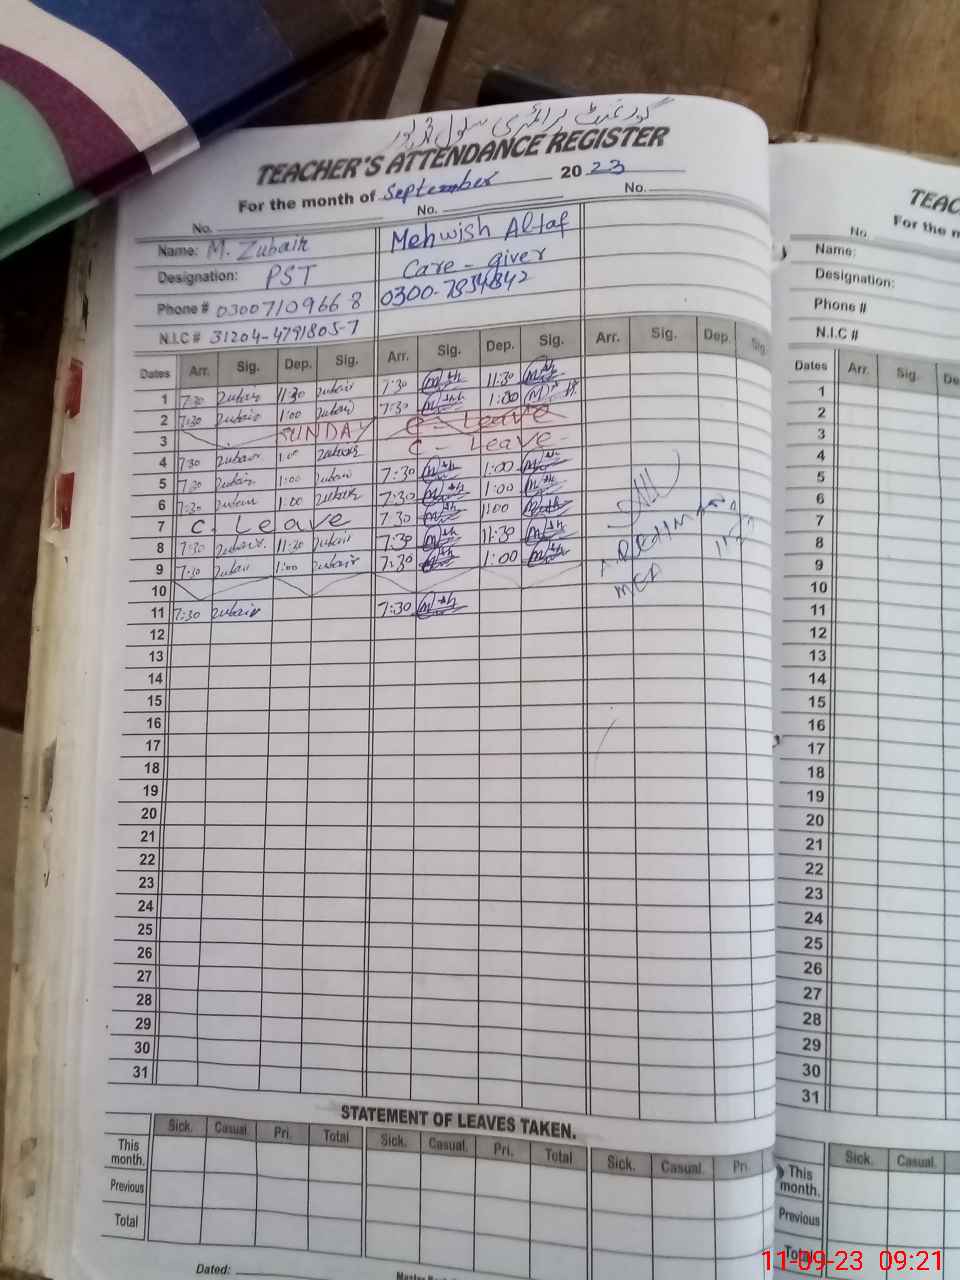 گورنمنٹ پرائمری سکول
TEACHER'S ATTENDANCE REGISTER
For the month of September 2023
No. No. No.
Name: M. Zubair Mehwish Altaf
Designation: PST Care-giver
Phone # 03007109668 0300-7834842
N.I.C # 31204-4791805-7
Dates Arr. Sig. Dep. Sig. Arr. Sig. Dep. Sig. Arr. Sig. Dep. Sig.
1 7:30 Zubair 11:30 Zubair 7:30 11:30
2 7:30 Zubair 1:00 Zubair 7:30 1:00
3 SUNDAY C - Leave
4 7:30 Zubair 1:00 Zubair C - Leave
5 7:30 Zubair 1:00 Zubair 7:30 1:00
6 7:30 Zubair 1:00 Zubair 7:30 1:00
7 C. Leave 7:30 1:00
8 7:30 Zubair 11:30 Zubair 7:30 11:30
9 7:30 Zubair 1:00 Zubair 7:30 1:00
MEA
10
11 7:30 Zubair 7:30
12
13
14
15
16
17
18
19
20
21
22
23
24
25
26
27
28
29
30
31
STATEMENT OF LEAVES TAKEN.
Sick. Casual. Pri. Total Sick. Casual. Pri. Total Sick. Casual. Pri.
This month.
Previous
Total
Dated:
TEAC
For the m
No.
Name:
Designation:
Phone #
N.I.C #
Dates Arr. Sig. De
1
2
3
4
5
6
7
8
9
10
11
12
13
14
15
16
17
18
19
20
21
22
23
24
25
26
27
28
29
30
31
Sick. Casual.
This month.
Previous
Total
11-09-23 09:21